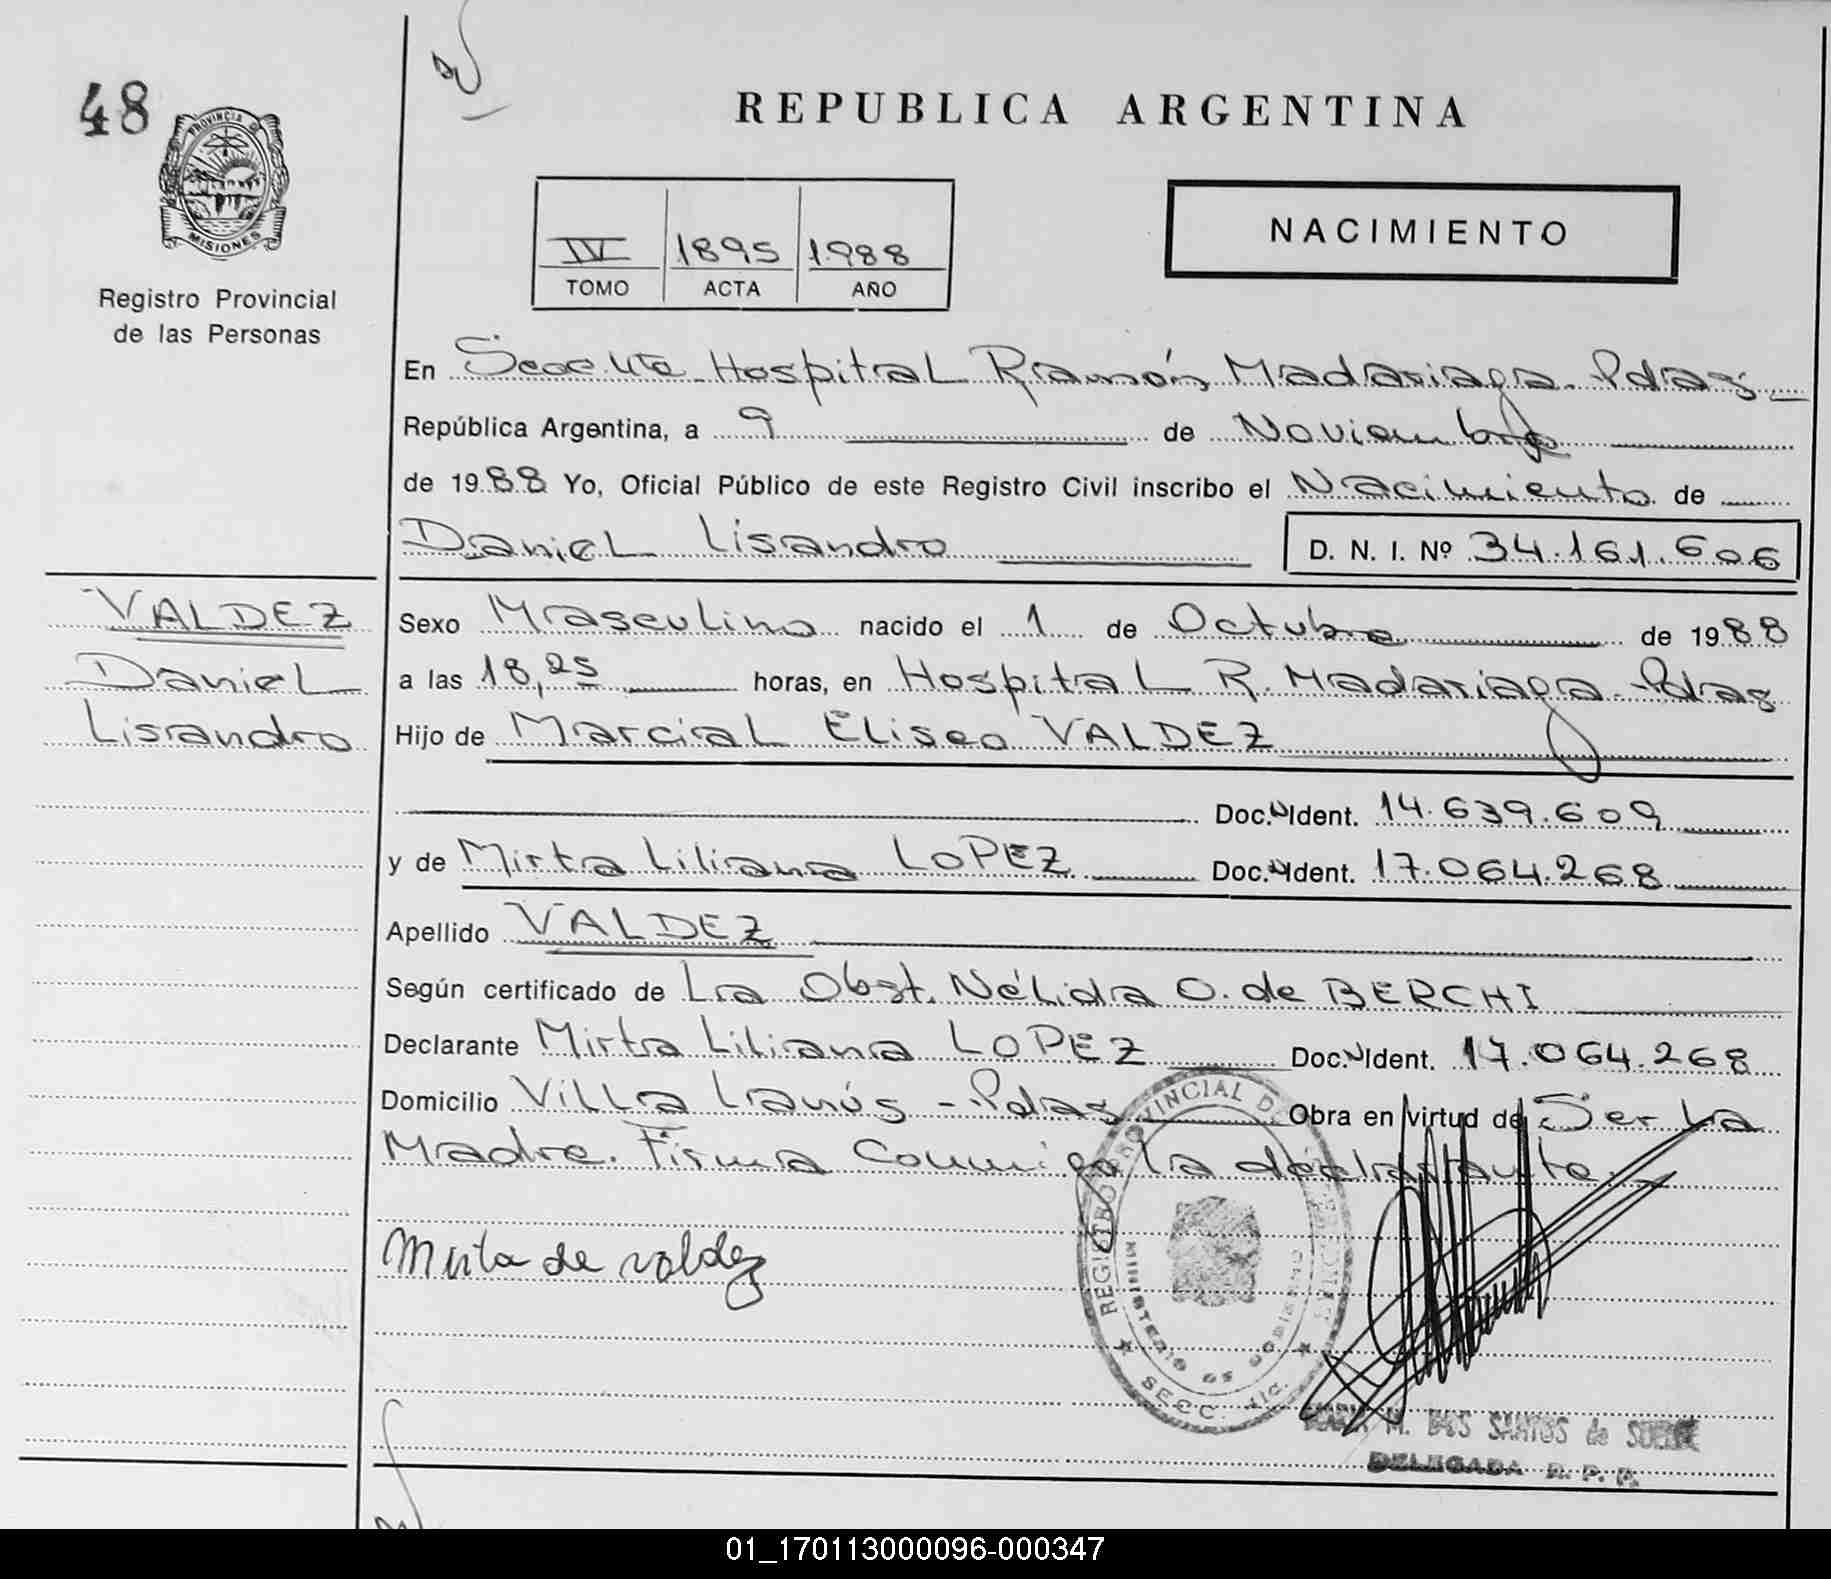 48
PROVINCIA DE
MISIONES
Registro Provincial
de las Personas
REPUBLICA ARGENTINA
IV 1895 1988
TOMO ACTA AÑO
NACIMIENTO
En Hospital Ramón Madariaga Pdas
República Argentina, a 9 de Noviembre
de 1988 Yo, Oficial Público de este Registro Civil inscribo el Nacimiento de
Daniel Lisandro D. N. I. Nº 34.161.606
VALDEZ
Daniel
Lisandro
Sexo Masculino nacido el 1 de Octubre de 1988
a las 18,25 horas, en Hospital R. Madariaga - Pdas
Hijo de Marcial Eliseo VALDEZ
Doc. N Ident. 14.639.609
y de Mirta Liliana LOPEZ Doc. N Ident. 17.064.268
Apellido VALDEZ
Según certificado de La Obst. Nélida O. de BERCHI
Declarante Mirta Liliana LOPEZ Doc. N Ident. 17.064.268
Domicilio Villa Lanús - Pdas Obra en virtud de Ser La
Madre. Firma Conmigo la declarante.
Mirta de valdez
REGISTRO PROVINCIAL DE LAS PERSONAS
MINISTERIO DE GOBIERNO
SECC.
M. DOS SANTOS de
DELEGADA R. P. P.
01_170113000096-000347